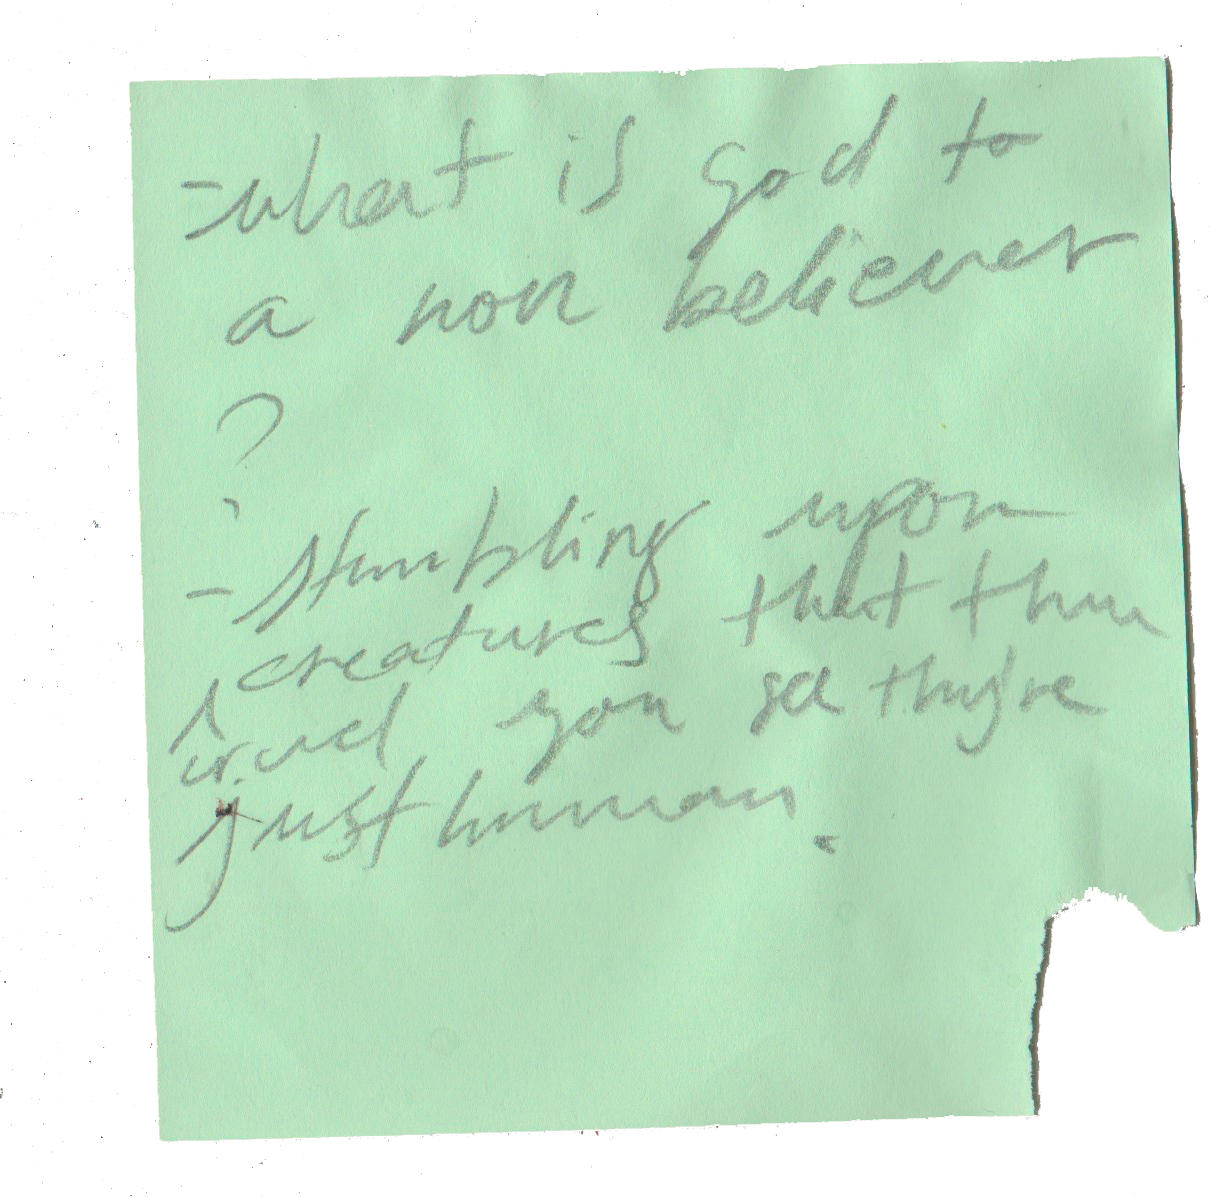 -what is god to
a non believer
?
- stumbling upon
creatures that then
and you see they're
just human.